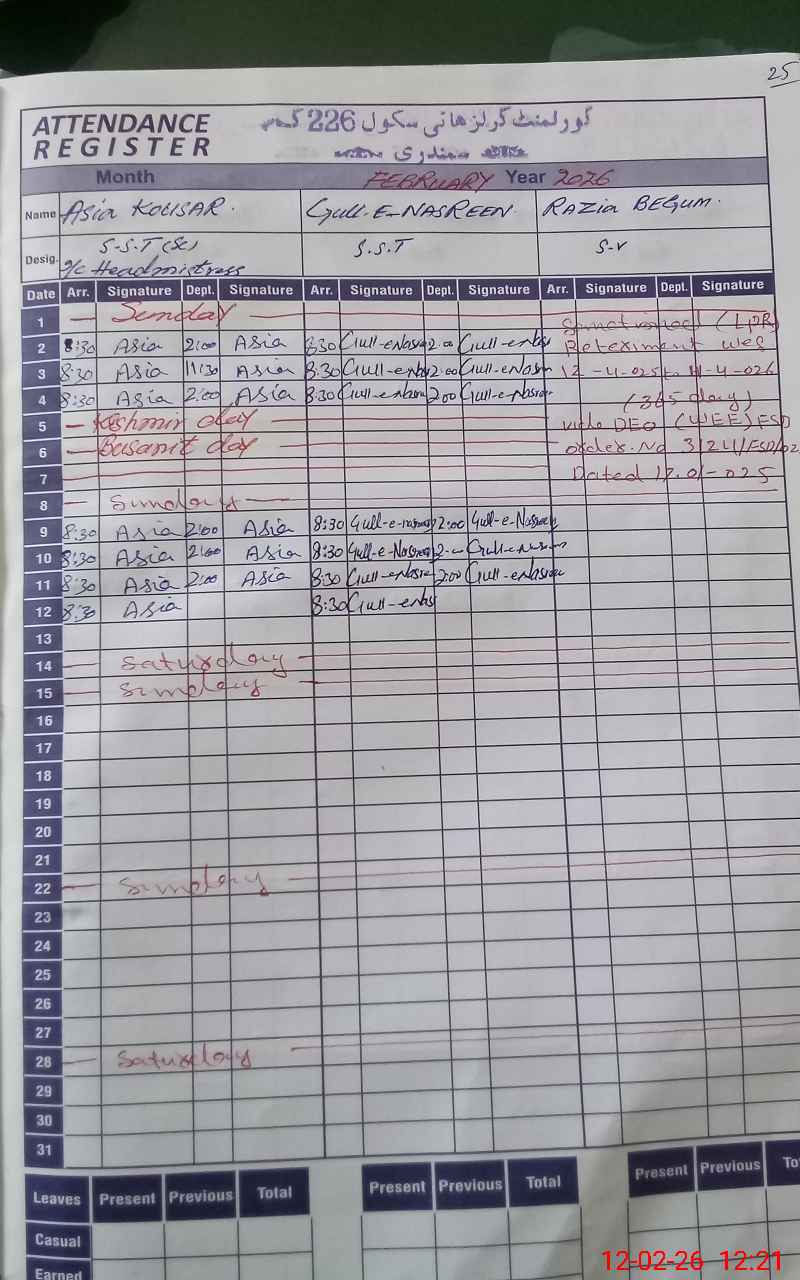 25
ATTENDANCE
REGISTER
گورنمنٹ گرلز ھائی سکول 226 گ ب
سمندری
Month FEBRUARY Year 2026
Name Asia KOUSAR. Gull-E-NASREEN. RAZia BEGUM.
Desig. S.S.T (Sc) S.S.T S-V
I/C Headmistress
Date Arr. Signature Dept. Signature Arr. Signature Dept. Signature Arr. Signature Dept. Signature
1 — Sunday — Sanctioned (LPR)
2 8:30 Asia 2:00 Asia 8:30 Gull-eNasr 2:00 Gull-eNas Retexment wef
3 8:30 Asia 11:30 Asia 8:30 Gull-eNas 2:00 Gull-eNasr 12-4-025 to 11-4-026
4 8:30 Asia 2:00 Asia 8:30 Gull-eNasr 2:00 Gull-eNasr (365 day)
5 — Kashmir day — vide DEO (WEE) FSD
6 — Basanit day — order. No 3124/FSD/02
7 Dated 17.01-025
8 — Sunday —
9 8:30 Asia 2:00 Asia 8:30 Gull-e-nasreen 2:00 Gull-e-Nasreen
10 8:30 Asia 2:00 Asia 8:30 Gull-e-Nasreen 2:00 Gull-e-nasreen
11 8:30 Asia 2:00 Asia 8:30 Gull-eNasr 2:00 Gull-eNasreen
12 8:30 Asia 8:30 Gull-eNas
13
14 — Saturday —
15 — Sunday —
16
17
18
19
20
21
22 — Sunday —
23
24
25
26
27
28 — Saturday —
29
30
31
Leaves Present Previous Total Present Previous Total Present Previous To
Casual
Earned
12-02-26 12:21